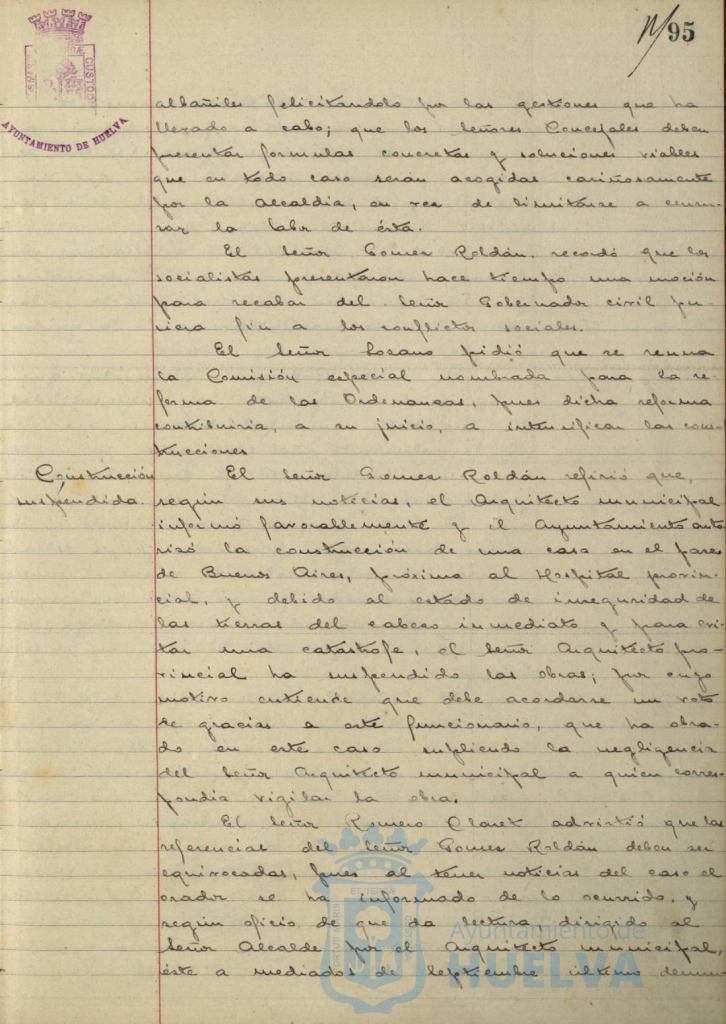 95
AYUNTAMIENTO DE HUELVA
albañiles felicitandolo por las gestiones que ha
llevado a cabo; que los Señores Concejales deben
presentar formulas concretas y soluciones viables
que en todo caso serán acogidas cariñosamente
por la Alcaldia, en vez de limitarse a censu-
rar la labor de ésta.
El Señor Gomez Roldán, recordó que los
socialistas presentaron hace tiempo una moción
para recabar del Señor Gobernador civil pu-
siera fin a los conflictos sociales.
El Señor Lozano pidió que se reuna
la Comisión especial nombrada para la re-
forma de las Ordenanzas, pues dicha reforma
contribuiria, a su juicio, a intensificar las cons-
trucciones
Construcción
suspendida.
El Señor Gomez Roldán refirió que,
según sus noticias, el Arquitecto municipal
informó favorablemente y el Ayuntamiento auto-
rizó la construcción de una casa en el paseo
de Buenos Aires, próxima al Hospital provin-
cial, y debido al estado de inseguridad de
las tierras del cabezo inmediato y para evi-
tar una catástrofe, el Señor Arquitecto pro-
vincial ha suspendido las obras; por cuyo
motivo entiende que debe acordarse un voto
de gracias a este funcionario, que ha obra-
do en este caso supliendo la negligencia
del Señor Arquitecto municipal a quien corres-
pondia vigilar la obra.
El Señor Romero Claret advirtió que las
referencias del Señor Gomez Roldán deben ser
equivocadas, pues al tener noticias del caso el
orador se ha informado de lo ocurrido, y
según oficio de que da lectura dirigido al
Señor Alcalde por el Arquitecto municipal,
éste a mediados de Septiembre último denun-
Ayuntamiento de
HUELVA